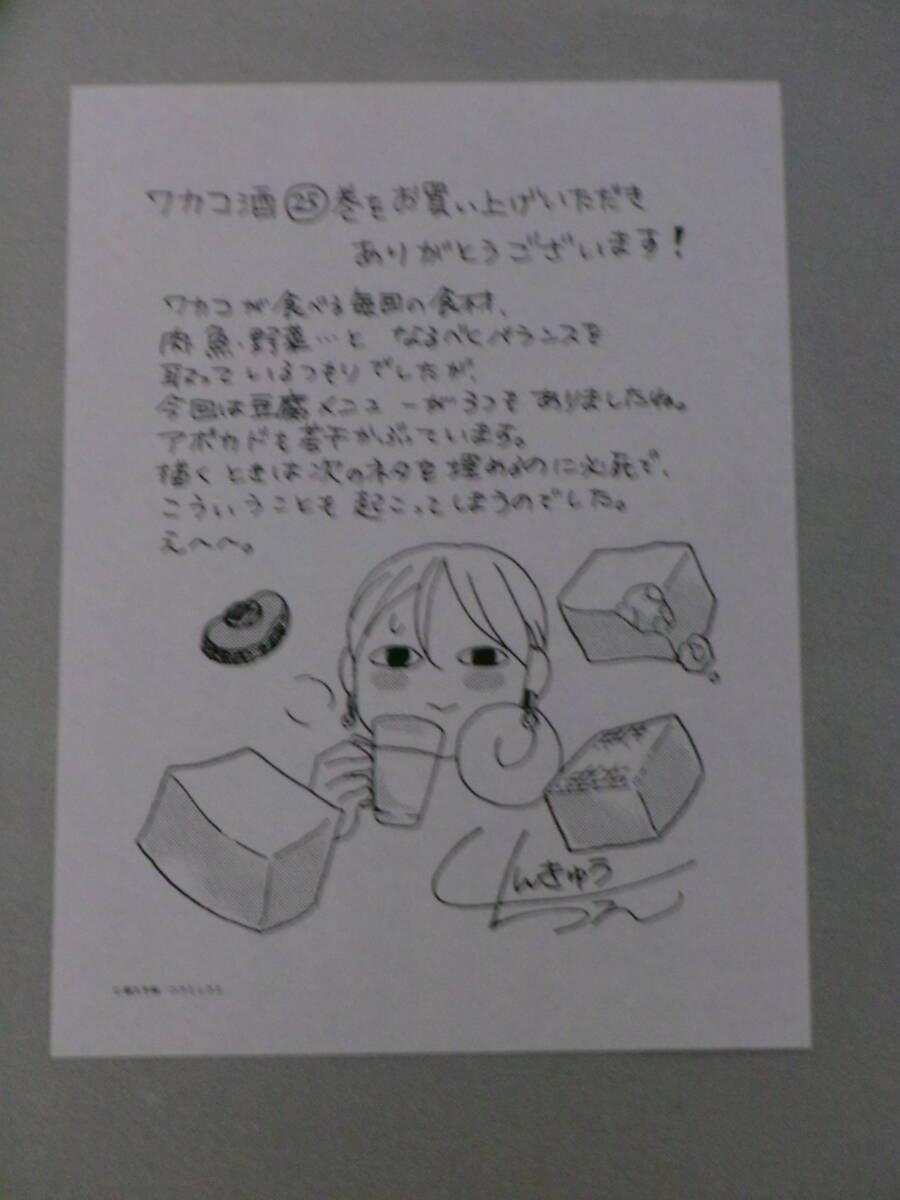 ワカコ酒㉕巻をお買い上げいただき
ありがとうございます!
ワカコが食べる毎回の食材、
肉・魚・野菜…と なるべくバランスを
取っているつもりでしたが、
今回は豆腐メニューが3つもありましたね。
アボカドも若干かぶっています。
描くときは次のネタを埋めるのに必死で、
こういうことも起こってしまうのでした。
えへへ。
しんきゅう